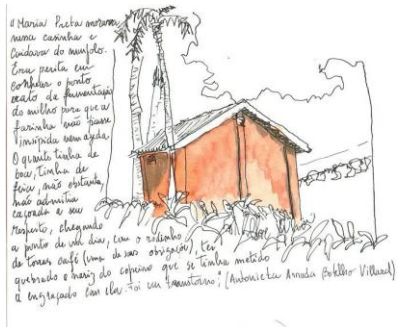 "Maria Preta morava
nessa casinha e
cuidava do munjolo.
Era perita em
conhecer o ponto
exato da fermentação
do milho para que a
farinha não fosse
insípida nem azeda.
O quanto tinha de
boa, tinha de
feia, não obstante,
não admitia
caçoada a seu
respeito, chegando
a ponto de um dia, com o rodinho
de torrar café (uma de suas obrigações), ter
quebrado o nariz do copeiro que se tinha metido
a engraçado com ela. Foi um transtorno." (Antonieta Arruda Botelho Villard)